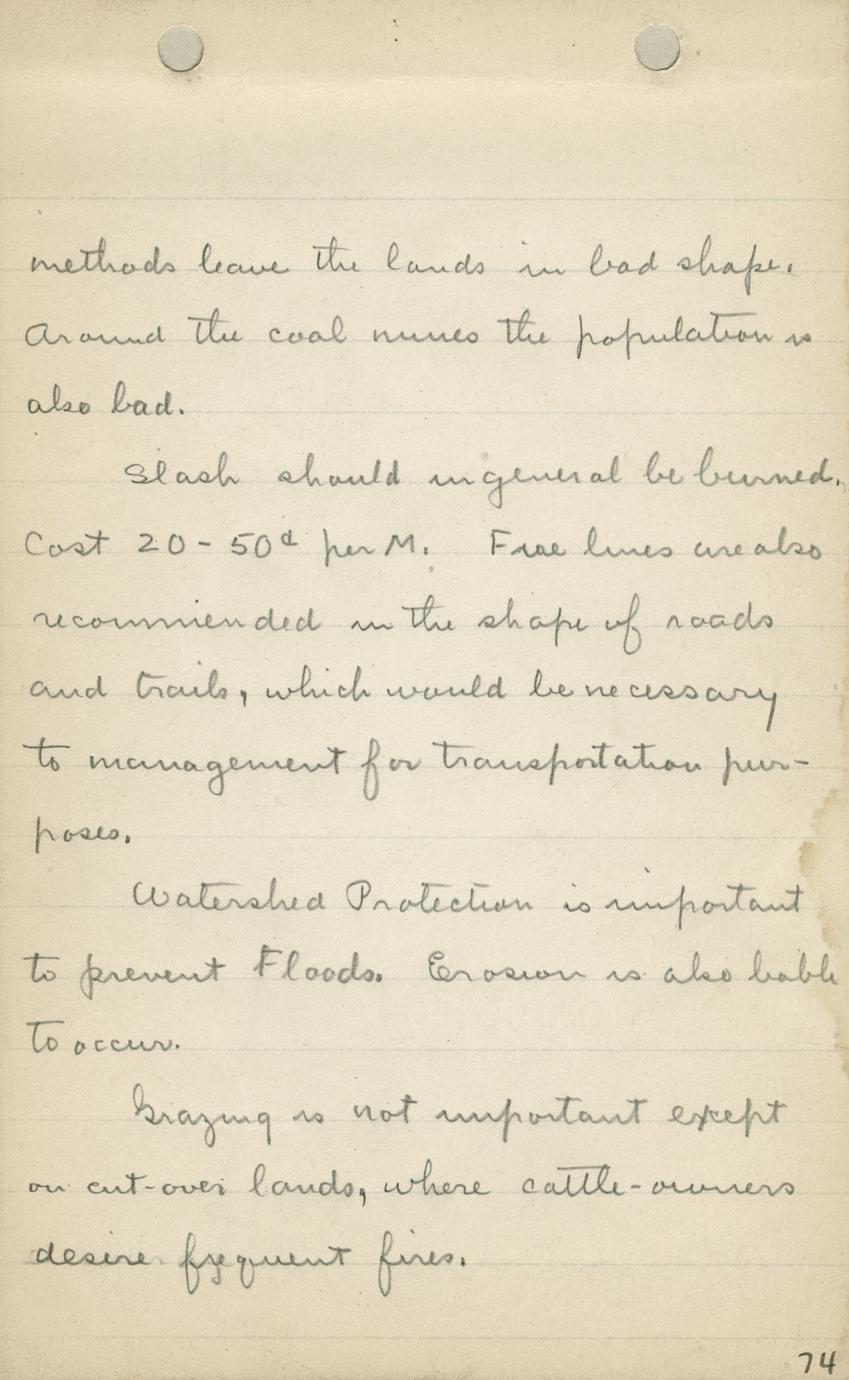 methods leave the lands in bad shape.
Around the coal mines the population is
also bad.
Slash should in general be burned.
Cost 20 - 50¢ per M. Fire lines are also
recommended in the shape of roads
and trails, which would be necessary
to management for transportation pur-
poses.
Watershed Protection is important
to prevent Floods. Erosion is also liable
to occur.
Grazing is not important exept
on cut-over lands, where cattle-owners
desire frequent fires.
74